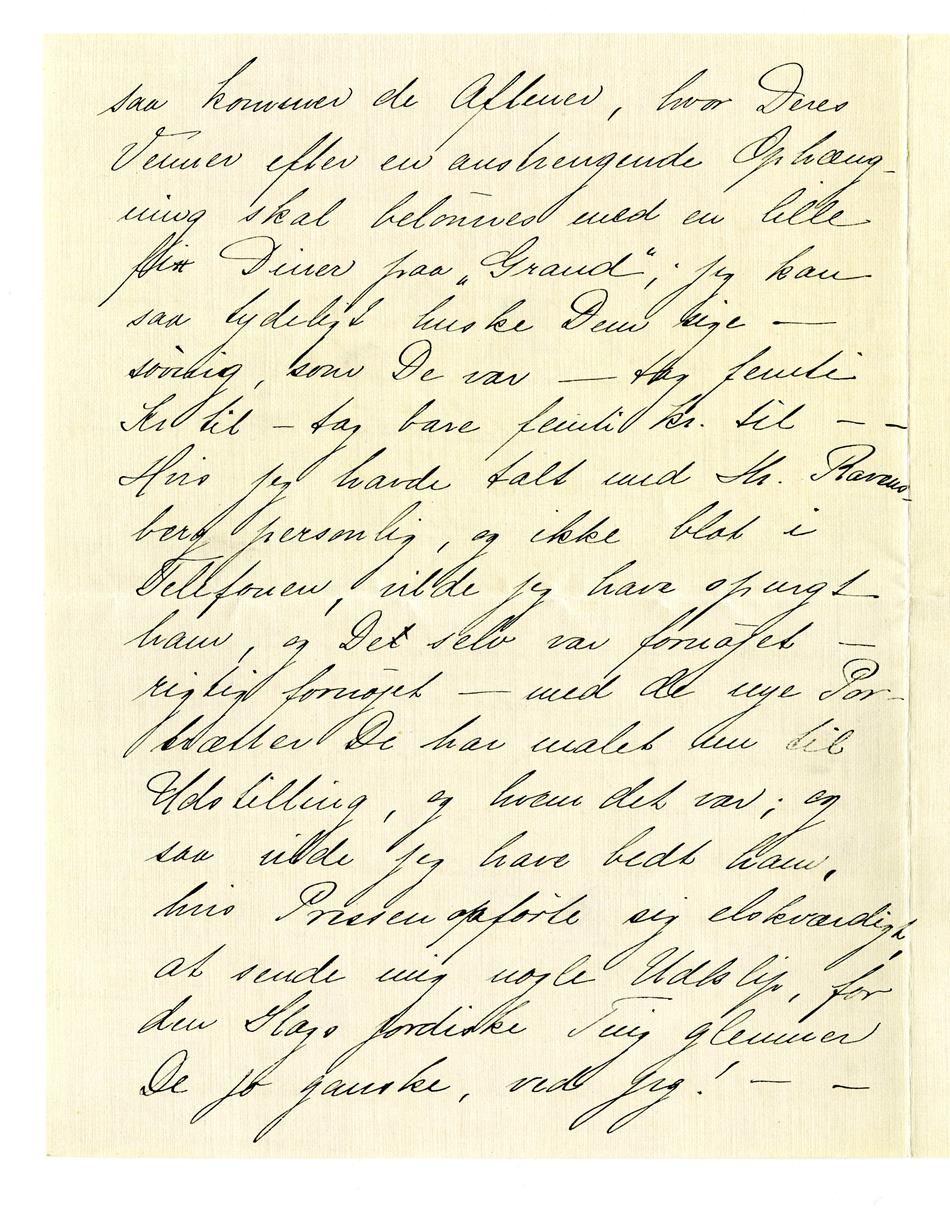 saa kommer de Aftener, hvor Deres
Venner efter en anstrengende Ophæng-
ning skal belönnes med en lille
fix Diner paa „Grand“; jeg kan
saa tydeligt huske Dem sige —
sövnig, som De var — tag femti
Kr til – tag bare femti kr. til – –
Hvis jeg havde talt med Hr. Ravens-
berg personlig, og ikke blot i
Telefonen, vilde jeg have spurgt
ham, og De selv var fornöjet —
rigtig fornöjet — med de nye Por-
trætter De har malet nu til
Udstilling, og hvem det var; og
saa vilde jeg have bedt ham,
hvis Pressen opförte sig elskværdigt,
at sende mig nogle Udklip, for
den Slags jordiske Ting glemmer
De jo ganske, ved jeg! — —